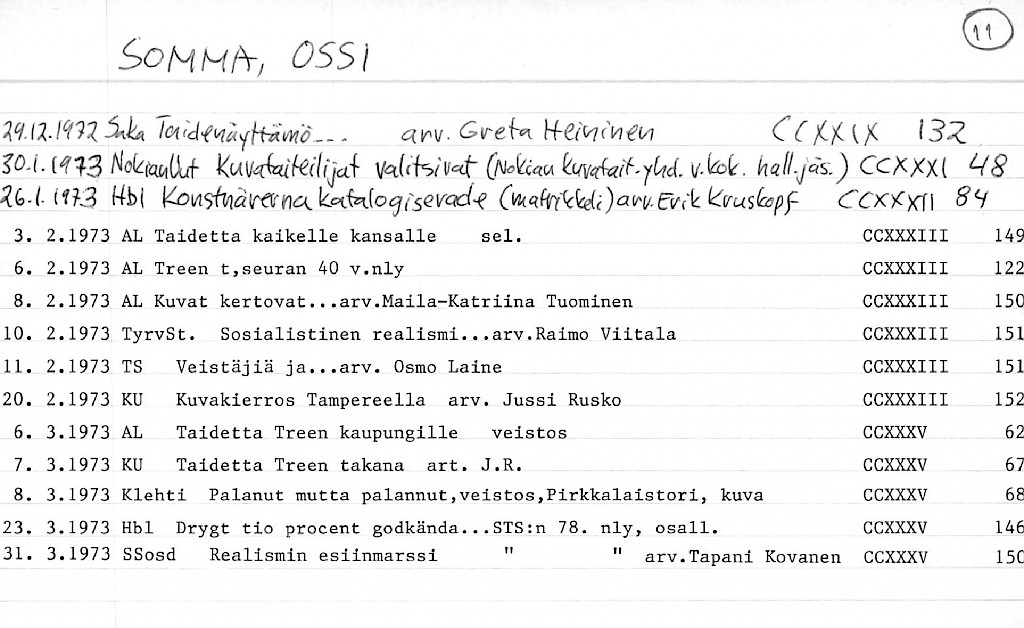 11
SOMMA, OSSI
29.12.1972 Saka Taidenäyttämö... arv. Greta Heininen CCXXIX 132
30.1.1973 NokianUut Kuvataiteilijat valitsivat (Nokian kuvatait.yhd. v.kok. hall.jäs.) CCXXXI 48
26.1.1973 Hbl Konstnärerna katalogiserade (matrikkeli) arv. Erik Kruskopf CCXXXII 84
3. 2.1973 AL Taidetta kaikelle kansalle sel. CCXXXIII 149
6. 2.1973 AL Treen t,seuran 40 v.nly CCXXXIII 122
8. 2.1973 AL Kuvat kertovat...arv.Maila-Katriina Tuominen CCXXXIII 150
10. 2.1973 TyrvSt. Sosialistinen realismi...arv.Raimo Viitala CCXXXIII 151
11. 2.1973 TS Veistäjiä ja...arv. Osmo Laine CCXXXIII 151
20. 2.1973 KU Kuvakierros Tampereella arv. Jussi Rusko CCXXXIII 152
6. 3.1973 AL Taidetta Treen kaupungille veistos CCXXXV 62
7. 3.1973 KU Taidetta Treen takana art. J.R. CCXXXV 67
8. 3.1973 Klehti Palanut mutta palannut,veistos,Pirkkalaistori, kuva CCXXXV 68
23. 3.1973 Hbl Drygt tio procent godkända...STS:n 78. nly, osall. CCXXXV 146
31. 3.1973 SSosd Realismin esiinmarssi " " arv.Tapani Kovanen CCXXXV 150